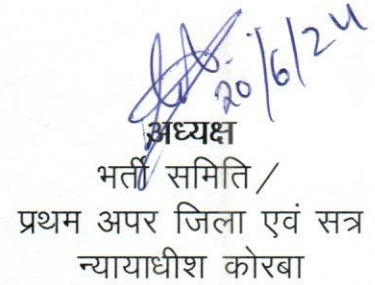 20/6/24
अध्यक्ष
भर्ती समिति /
प्रथम अपर जिला एवं सत्र
न्यायाधीश कोरबा